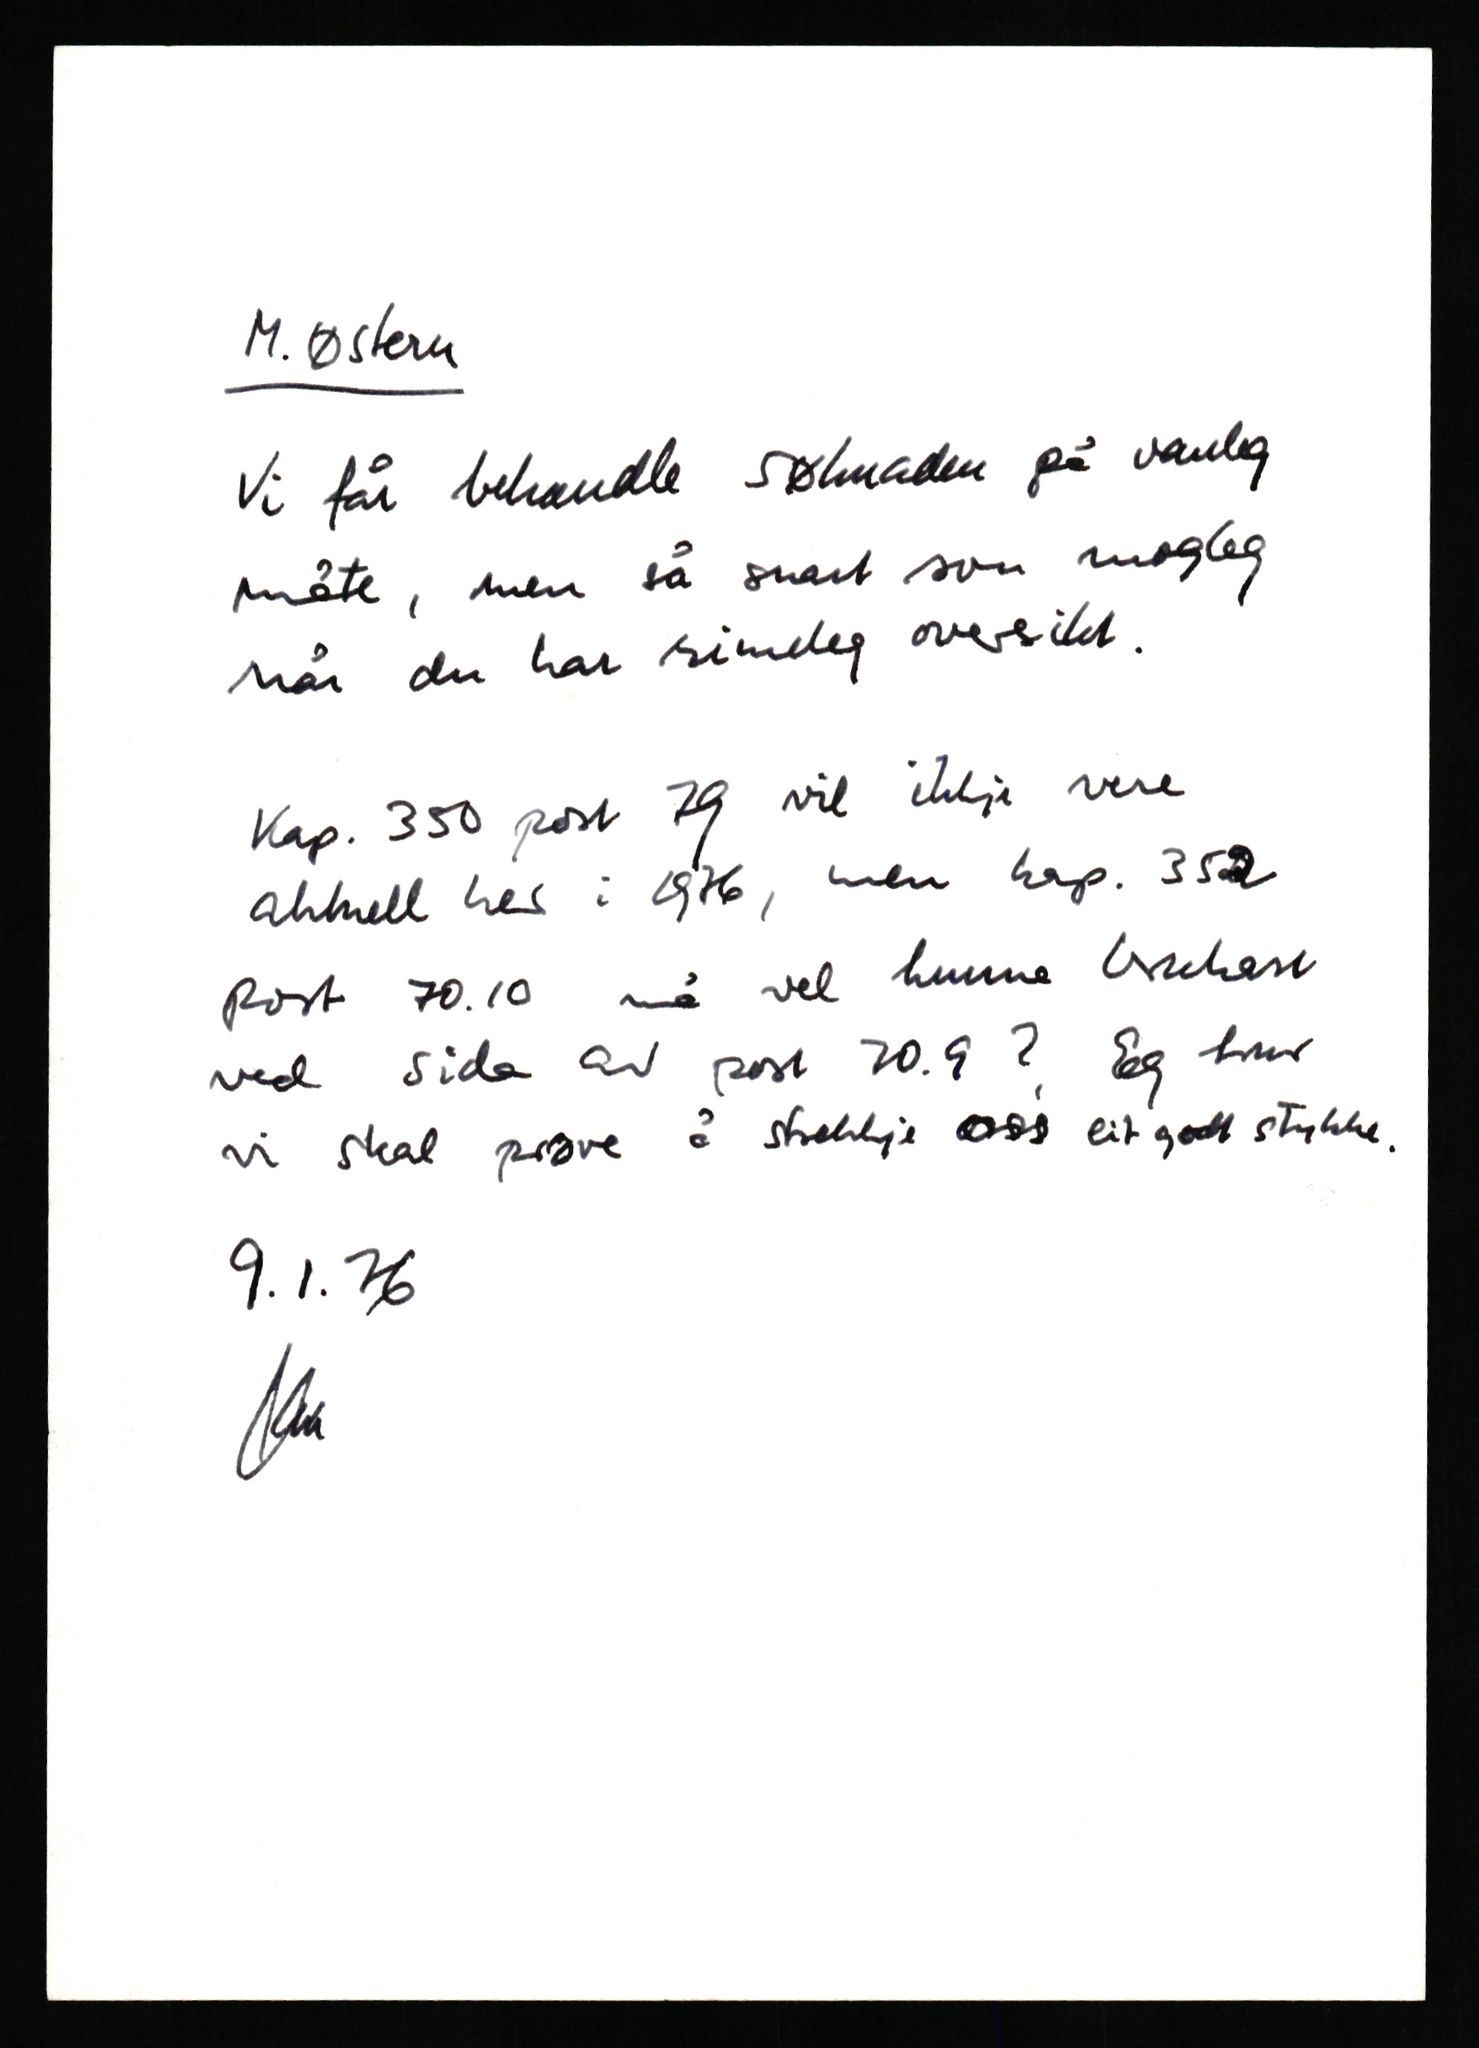 M. Østern
Vi får behandle søknaden på vanleg
måte, men så snart som mogleg
når du har rimeleg oversikt.
Kap. 350 post 79 vil ikkje vere
aktuell her i 1976, men kap. 352
post 70.10 må vel kunne brukast
ved sida av post 70.9? Eg trur
vi skal prøve å strekkje oss eit godt stykke.
9.1.76